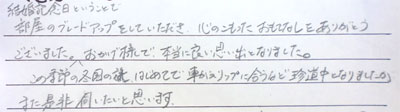 結婚記念日ということで
部屋のグレードアップをしていただき、心のこもったおもてなしをありがとう
ございました。おかげ様で、本当に良い思い出となりました。
この季節の冬国の旅はじめてで車がスリップに合うなど珍道中となりましたが
また是非伺いたいと思います。